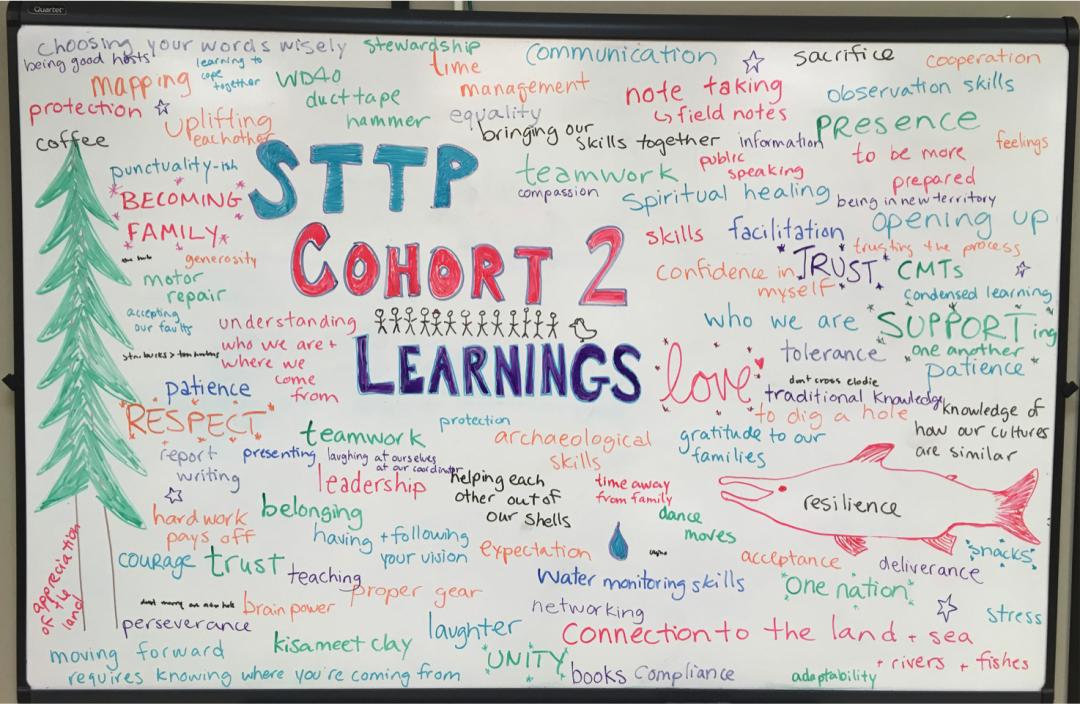 Quartet
choosing your words wisely
being good hosts
learning to
cope
together
stewardship
time
management
communication
sacrifice
cooperation
mapping
WD40
duct tape
hammer
equality
note taking
↳ field notes
observation skills
protection
uplifting
each other
bringing our
skills together
information
PRESENCE
feelings
coffee
punctuality-ish
STTP
teamwork
compassion
public
speaking
to be more
prepared
BECOMING
FAMILY
spiritual healing
being in new territory
opening up
generosity
skills
facilitation
trusting the process
motor
repair
COHORT 2
confidence in
myself
TRUST
CMTs
condensed learning
accepting
our faults
understanding
who we are +
where we
come
from
who we are
SUPPORTing
one another
starbucks > tim hortons
LEARNINGS
love
tolerance
patience
patience
dont cross elodie
traditional knowledge
to dig a hole
knowledge of
how our cultures
are similar
RESPECT
teamwork
protection
archaeological
skills
gratitude to our
families
report
writing
presenting
laughing at ourselves
at our coordinator
leadership
helping each
other out of
our shells
time away
from family
resilience
hard work
pays off
belonging
having + following
your vision
expectation
dance
moves
acceptance
deliverance
snacks
courage
trust
teaching
proper gear
water monitoring skills
One nation
of appreciation
the
land
brain power
networking
stress
perseverance
kisameet clay
laughter
connection to the land + sea
+ rivers + fishes
moving forward
requires knowing where you're coming from
UNITY
books
compliance
adaptability